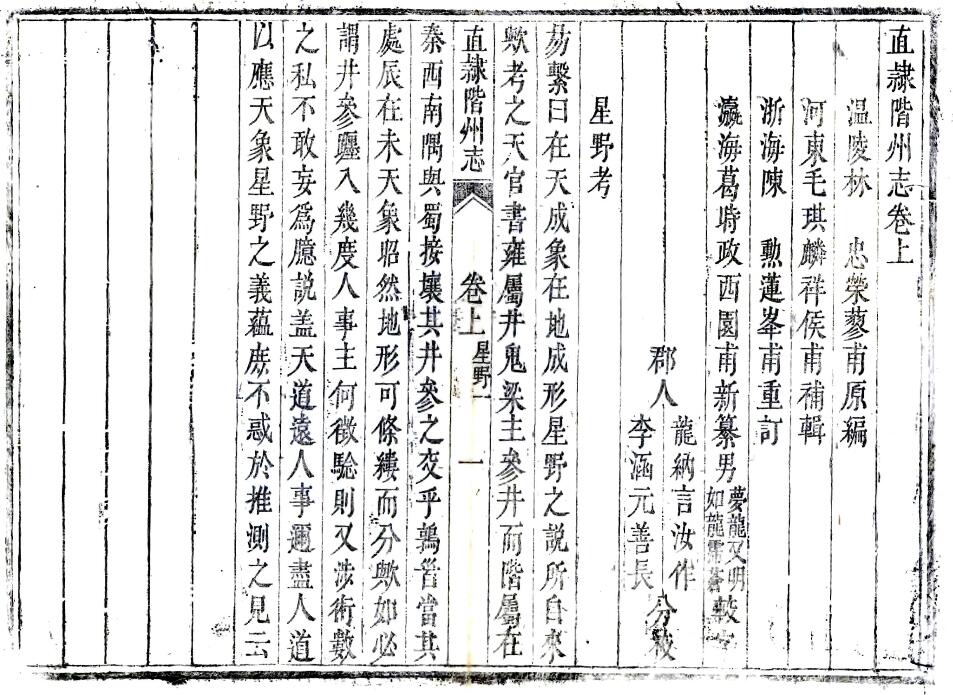 直隷階州志卷上
温陵林　忠榮蓼甫原編
河東毛琪麟祥侯甫補輯
浙海陳　勲蓮峯甫重訂
瀛海葛時政西園甫新纂男夢龍又明
如龍霈蒼較字
郡人龍納言汝作
李涵元善長分校
星野考
昜繫曰在天成象在地成形星野之說所自來
歟考之天官書雍屬井鬼梁主參井而階屬在
直隷階州志　卷上　星野一　一
秦西南隅與蜀接壤其井參之交乎鶉首當其
處辰在未天象昭然地形可條縷而分歟如必
謂井參躔入幾度人事主何徵驗則又涉術數
之私不敢妄爲臆説盖天道遠人事邇盡人道
以應天象星野之義蘊庻不惑於推測之見云